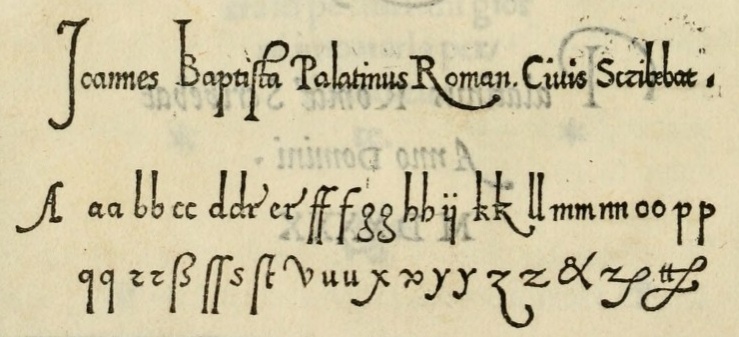 Joannes Baptista Palatinus Roman. Ciuis Scribebat.
A aa bb cc ddr er ff f gg hh ij kk ll mm nn oo pp
qq rr ß ſſ s ſt v uu x x y y z z &